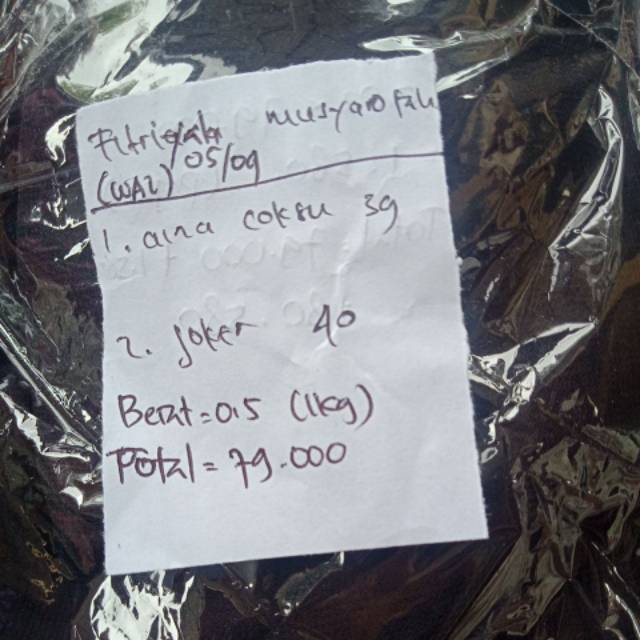 Fitriyah musyarofah
(WA2) 05/09
1. aina coksu 39
2. joker 40
Berat = 0.5 (1kg)
Total = 79.000